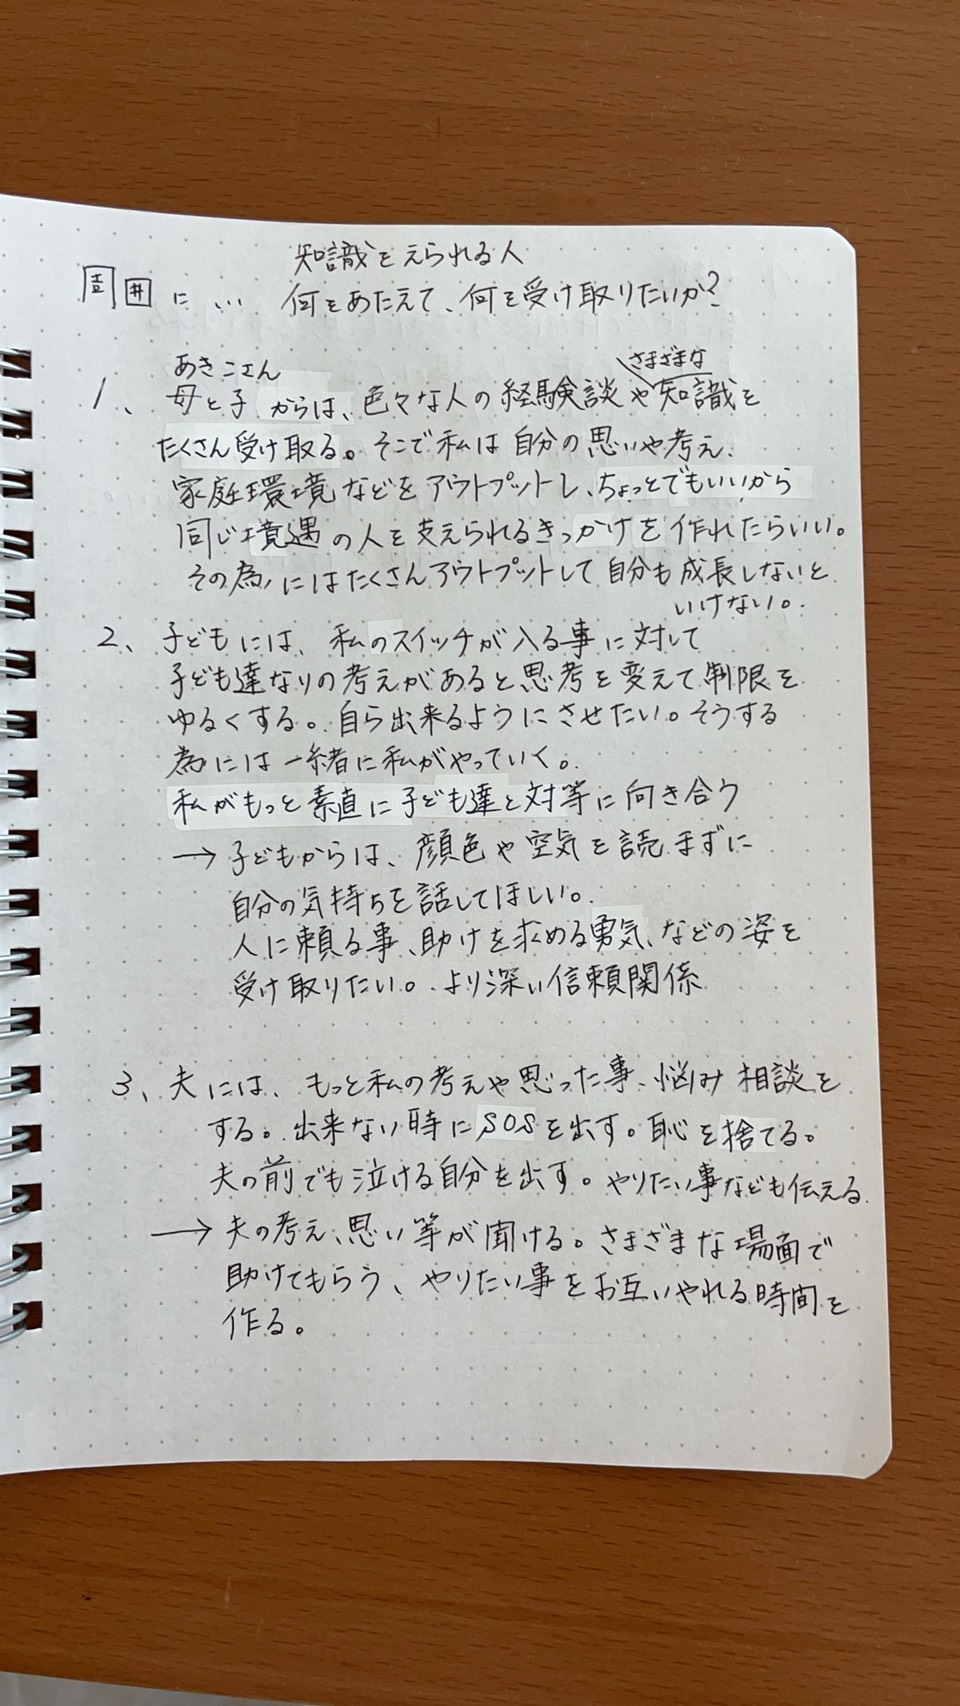 知識をえられる人
周囲に… 何をあたえて、何を受け取りたいか?
あきこさん
さまざまな
1、母と子からは、色々な人の経験談や知識を
たくさん受け取る。そこで私は自分の思いや考え、
家庭環境などをアウトプットし、ちょっとでもいいから
同じ境遇の人を支えられるきっかけを作れたらいい。
その為にはたくさんアウトプットして自分も成長しないと
いけない。
2、子どもには、私のスイッチが入る事に対して
子ども達なりの考えがあると思考を変えて制限を
ゆるくする。自ら出来るようにさせたい。そうする
為には一緒に私がやっていく。
私がもっと素直に子ども達と対等に向き合う
→子どもからは、顔色や空気を読まずに
自分の気持ちを話してほしい。
人に頼る事、助けを求める勇気、などの姿を
受け取りたい。より深い信頼関係
3、夫には、もっと私の考えや思った事、悩み相談を
する。出来ない時にSOSを出す。恥を捨てる。
夫の前でも泣ける自分を出す。やりたい事なども伝える。
→夫の考え、思い等が聞ける。さまざまな場面で
助けてもらう、やりたい事をお互いやれる時間を
作る。